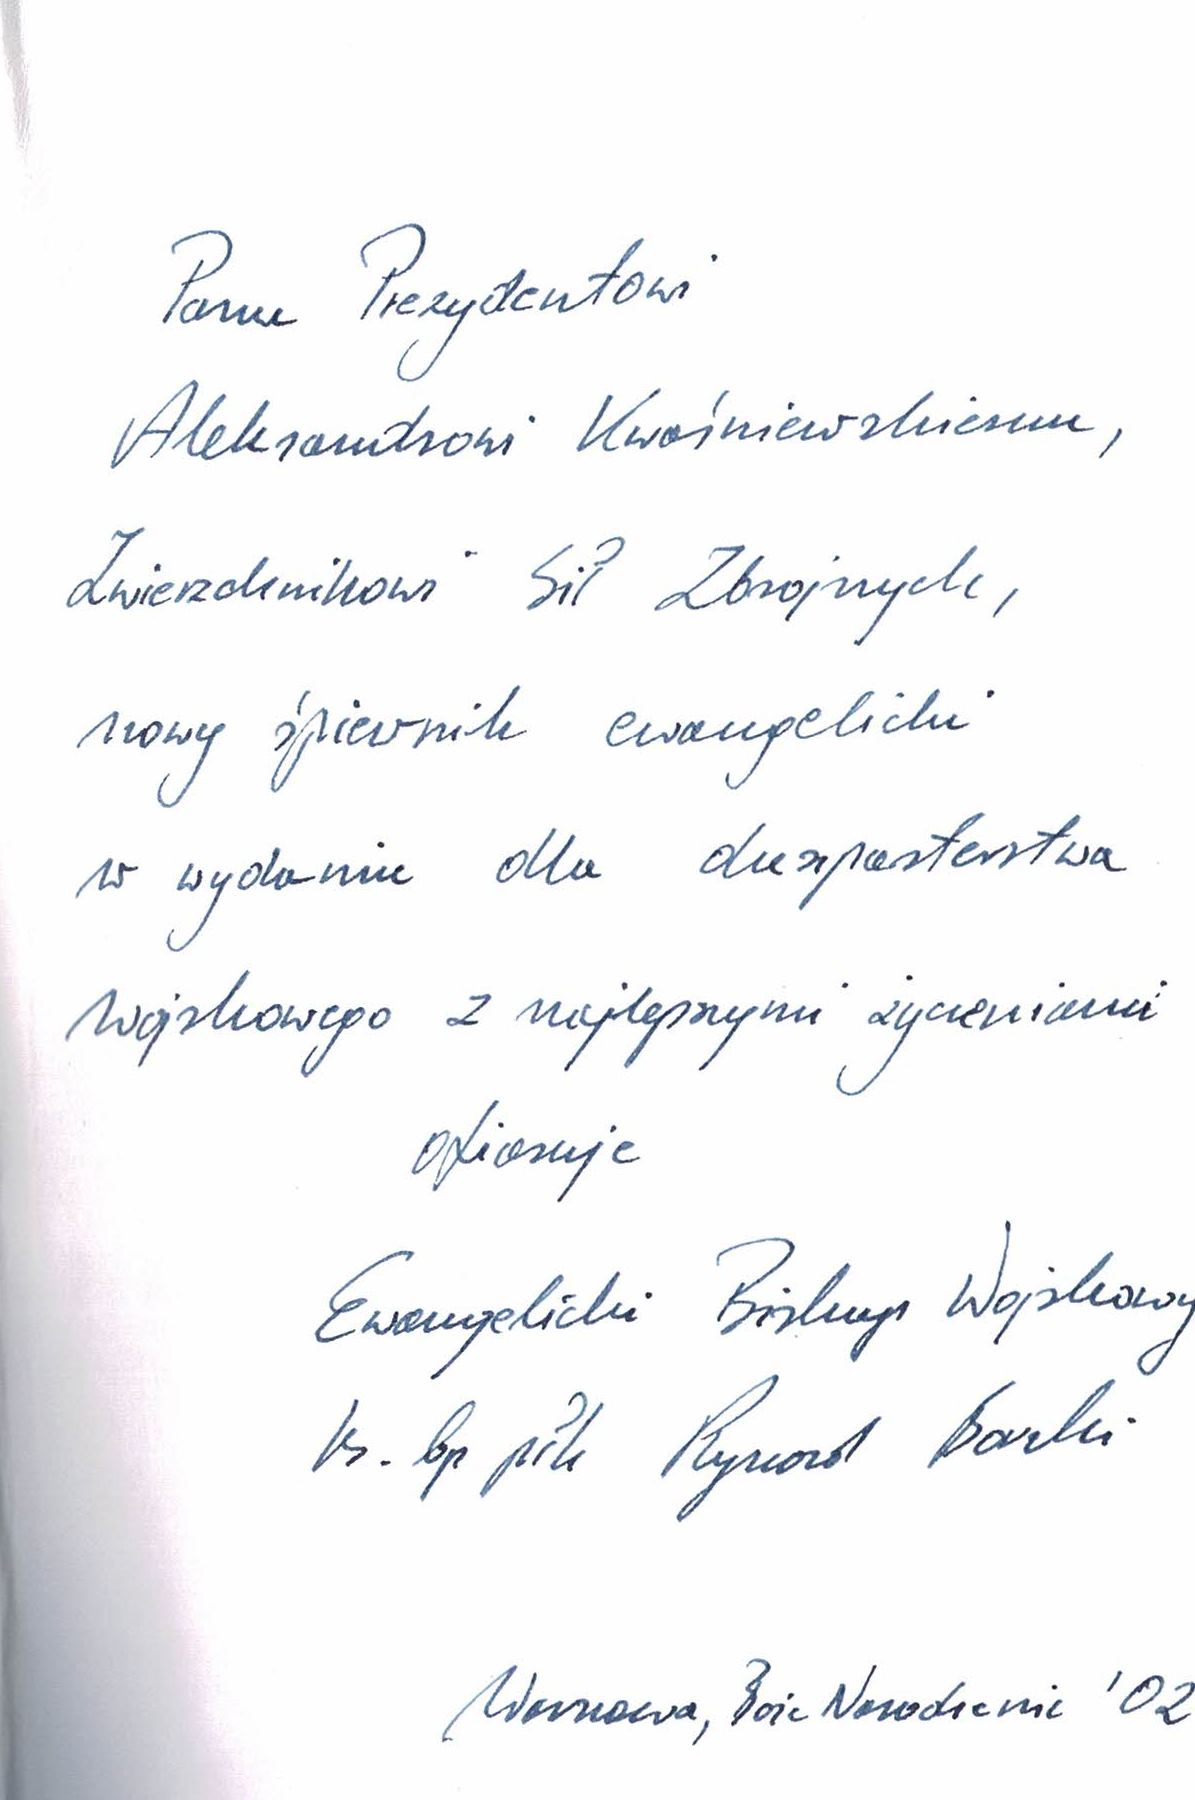 Panu Prezydentowi
Aleksandrowi Kwaśniewskiemu,
Zwierzchnikowi Sił Zbrojnych,
nowy śpiewnik ewangelicki
w wydaniu dla duszpasterstwa
wojskowego z najlepszymi życzeniami
ofiaruje
Ewangelicki Biskup Wojskowy
ks. bp płk Ryszard Borski
Warszawa, Boże Narodzenie '02